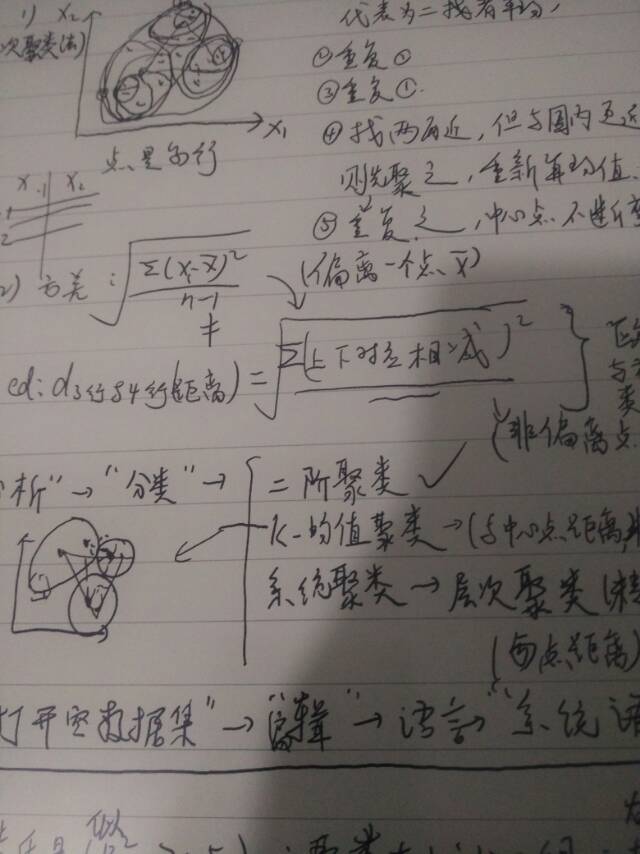 1) X₂
次聚类(法)
X₁
点是每行
②重复①
③重复①.
④找两两近,但与圈内更近
则先聚之,重新算均值.
⑤重复之,中心点不断变
X₁ X₂
1
2
2) 方差: √Σ(xᵢ-x̄)²/n-1
(偏离一个点 x̄)
≠
ed: d3行与4行(距离) = √Σ(上下对应相减)²
(非偏离点
分析"→"分类"→
二阶聚类 ✓
k-均值聚类→(与中心点距离
系统聚类→层次聚类
(两点距离)
打开空数据集"→"编辑"→语言→"系统语